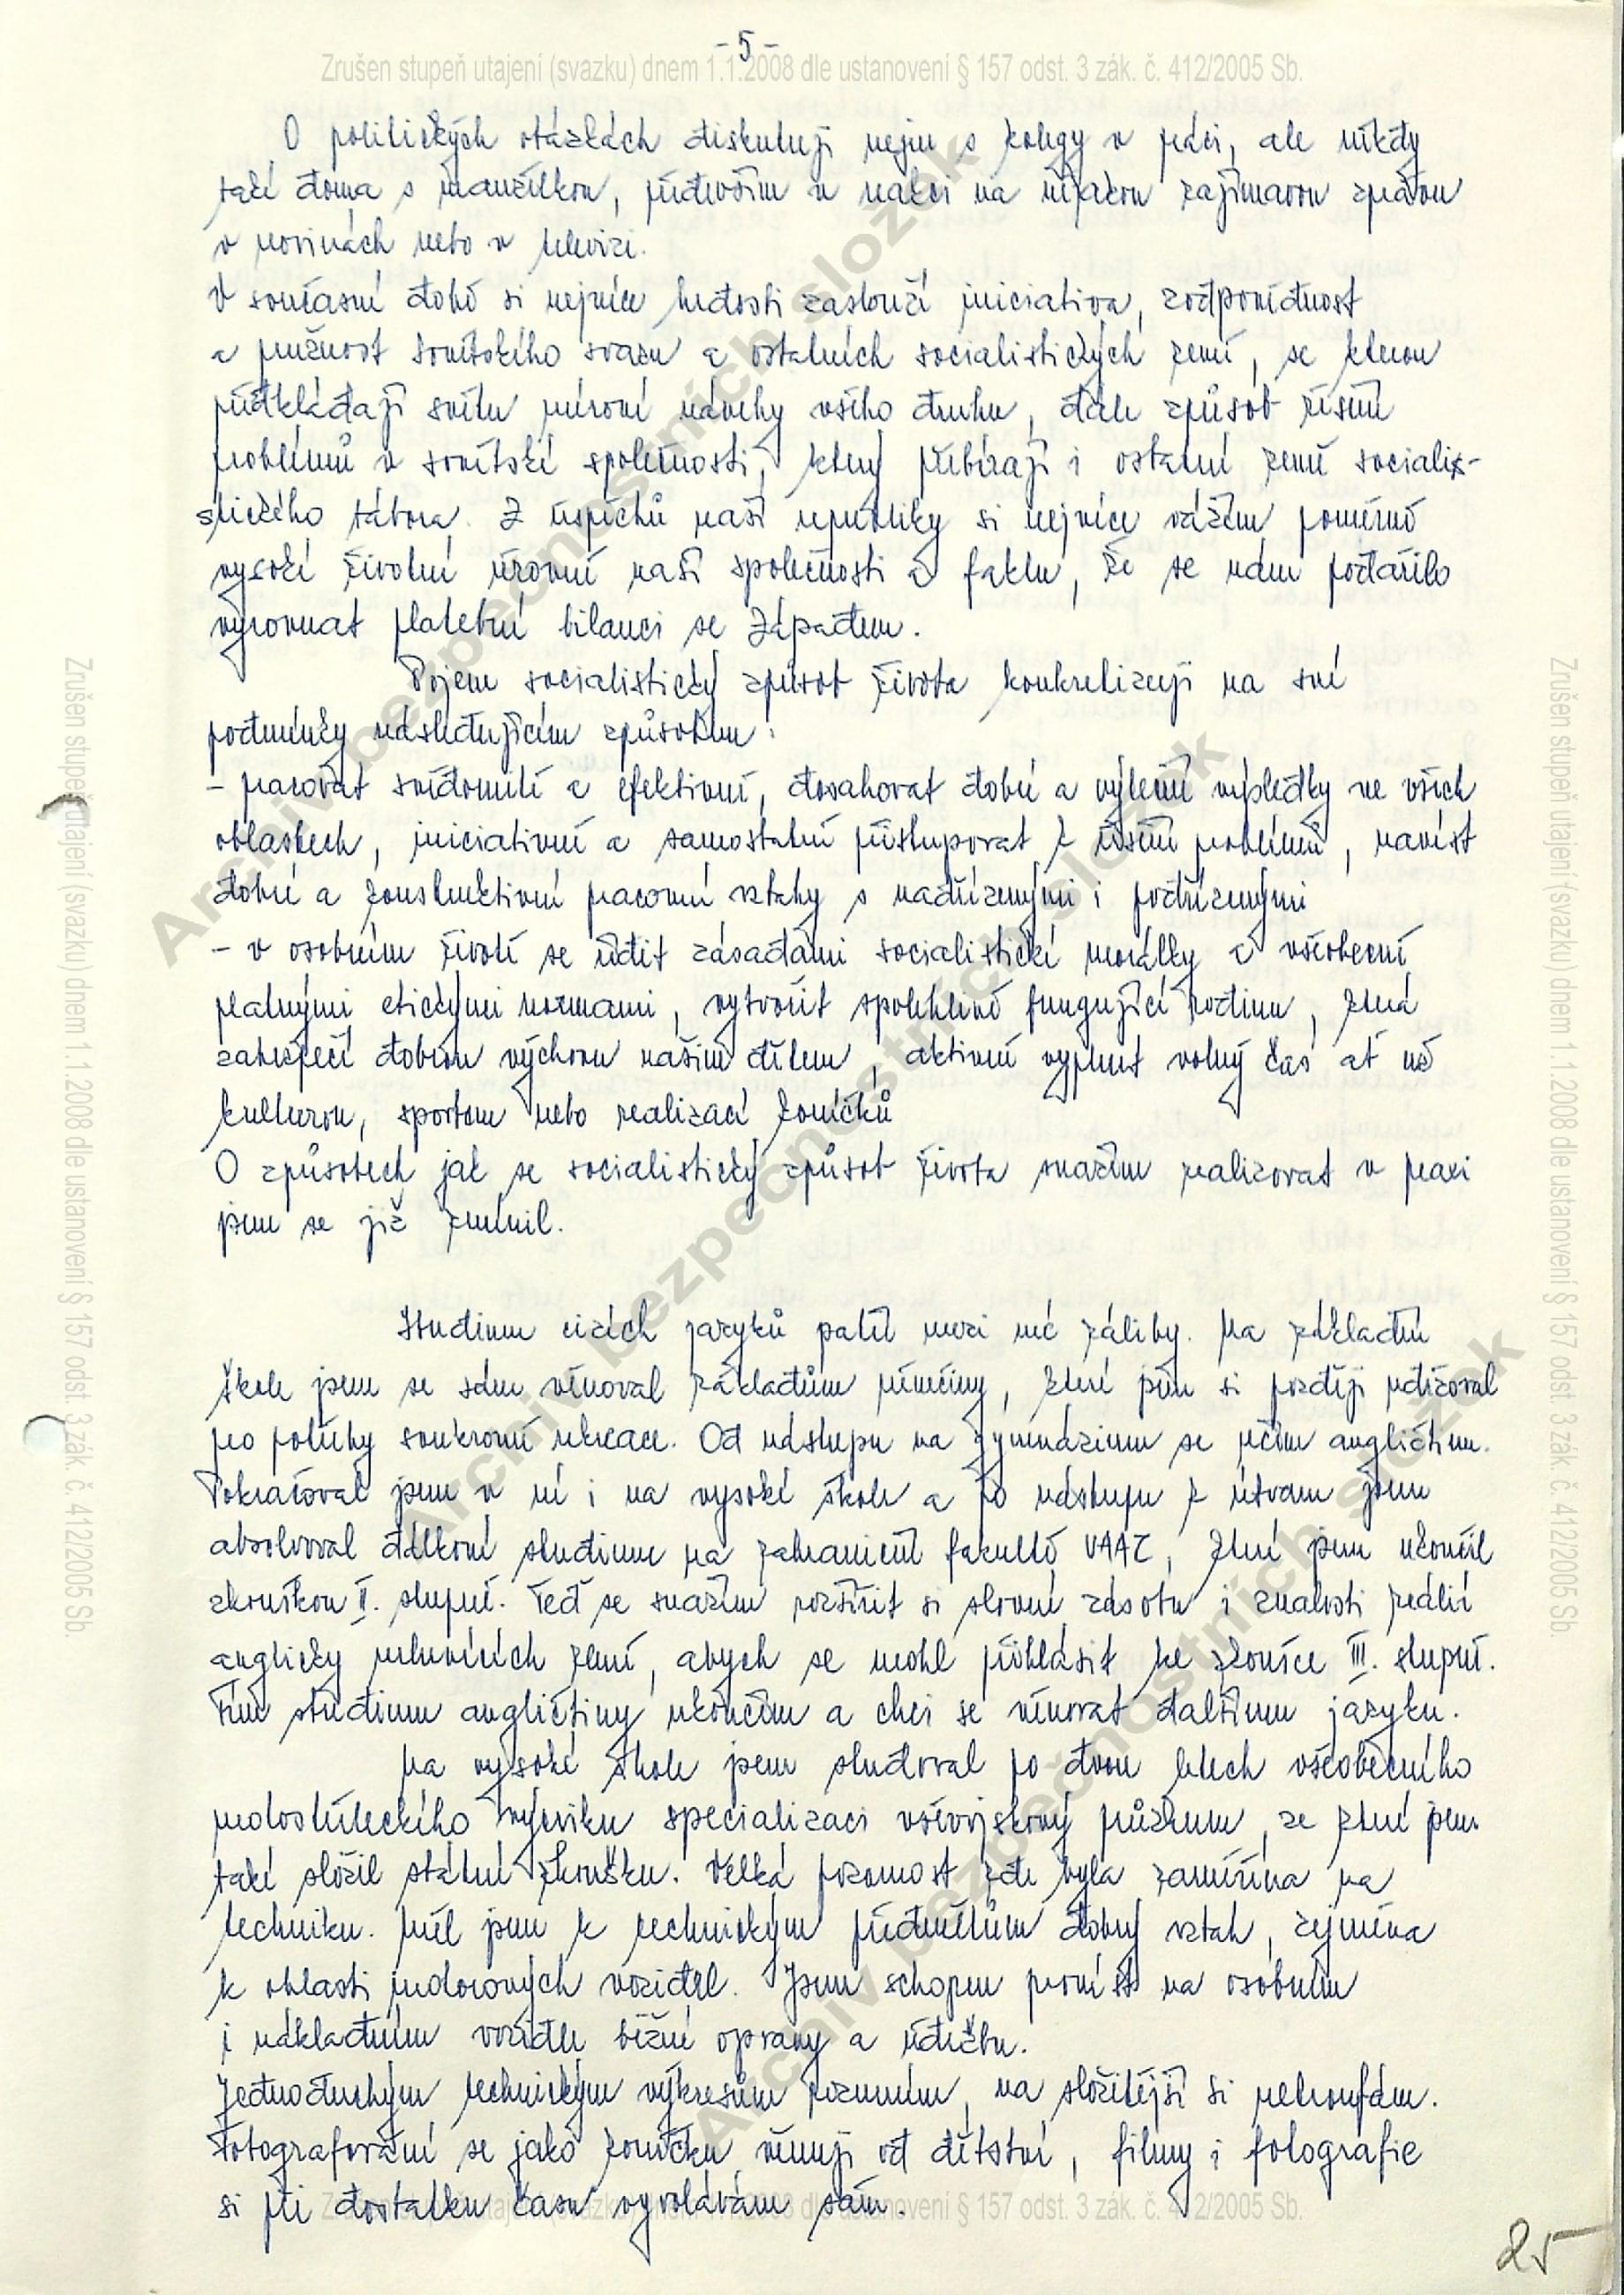 - 5 -
Zrušen stupeň utajení (svazku) dnem 1.1.2008 dle ustanovení § 157 odst. 3 zák. č. 412/2005 Sb.
O politických otázkách diskutuji nejen s kolegy v práci, ale někdy
také doma s manželkou, především v reakci na nějakou zajímavou zprávu
v novinách nebo v televizi.
V současné době si nejvíce hodnosti zaslouží iniciativa, zodpovědnost
a pružnost Sovětského svazu a ostatních socialistických zemí, se kterou
předkládají světu mírové návrhy všeho druhu, dále způsob řešení
problémů v sovětské společnosti, který přebírají i ostatní země socialis-
stického tábora. Z úspěchů naší republiky si nejvíce vážím poměrně
vysoké životní úrovně naší společnosti a faktu, že se nám podařilo
vyrovnat platební bilanci se Západem.
Pojem socialistický způsob života konkretizuji na své
podmínky následujícím způsobem:
- pracovat svědomitě a efektivně, dosahovat dobré a výtečné výsledky ve všech
oblastech, iniciativně a samostatně přistupovat k řešení problémů, navést
dobré a konstruktivní pracovní vztahy s nadřízenými i podřízenými
- v osobním životě se řídit zásadami socialistické morálky a všeobecně
platnými etickými normami, vytvořit spolehlivě fungující rodinu, která
zabezpečí dobrou výchovu našim dětem, aktivně vyplnit volný čas ať už
kulturou, sportem nebo realizací koníčků
O způsobech jak se socialistický způsob života snažím realizovat v praxi
jsem se již zmínil.
Studium cizích jazyků patří mezi mé záliby. Na základní
škole jsem se sám věnoval základům němčiny, které jsem si později udržoval
pro potřeby soukromé rekreace. Od nástupu na gymnázium se učím angličtinu.
Pokračoval jsem v ní i na vysoké škole a po nástupu k útvaru jsem
absolvoval dálkové studium na zahraniční fakultě VAAZ, které jsem ukončil
zkouškou II. stupně. Teď se snažím rozšířit si slovní zásobu i znalosti reálií
anglicky mluvících zemí, abych se mohl přihlásit ke zkoušce III. stupně.
Tím studium angličtiny ukončím a chci se věnovat dalšímu jazyku.
Na vysoké škole jsem studoval po dvou letech všeobecného
motostřeleckého výcviku specializaci vševojskový průzkum, ze které jsem
také složil státní zkoušku. Velká pozornost zde byla zaměřena na
techniku. Měl jsem k technickým předmětům dobrý vztah, zejména
k oblasti motorových vozidel. Jsem schopen provést na osobním
i nákladním vozidle běžné opravy a údržbu.
Jednoduchým technickým výkresům rozumím, na složitější si netroufám.
Fotografování se jako koníčku věnuji od dětství, filmy i fotografie
si při dostatku času vyvolávám sám.
Zrušen stupeň utajení (svazku) dnem 1.1.2008 dle ustanovení § 157 odst. 3 zák. č. 412/2005 Sb.
25
Zrušen stupeň utajení (svazku) dnem 1.1.2008 dle ustanovení § 157 odst. 3 zák. č. 412/2005 Sb.
Zrušen stupeň utajení (svazku) dnem 1.1.2008 dle ustanovení § 157 odst. 3 zák. č. 412/2005 Sb.
Archiv bezpečnostních složek
Archiv bezpečnostních složek
Archiv bezpečnostních složek